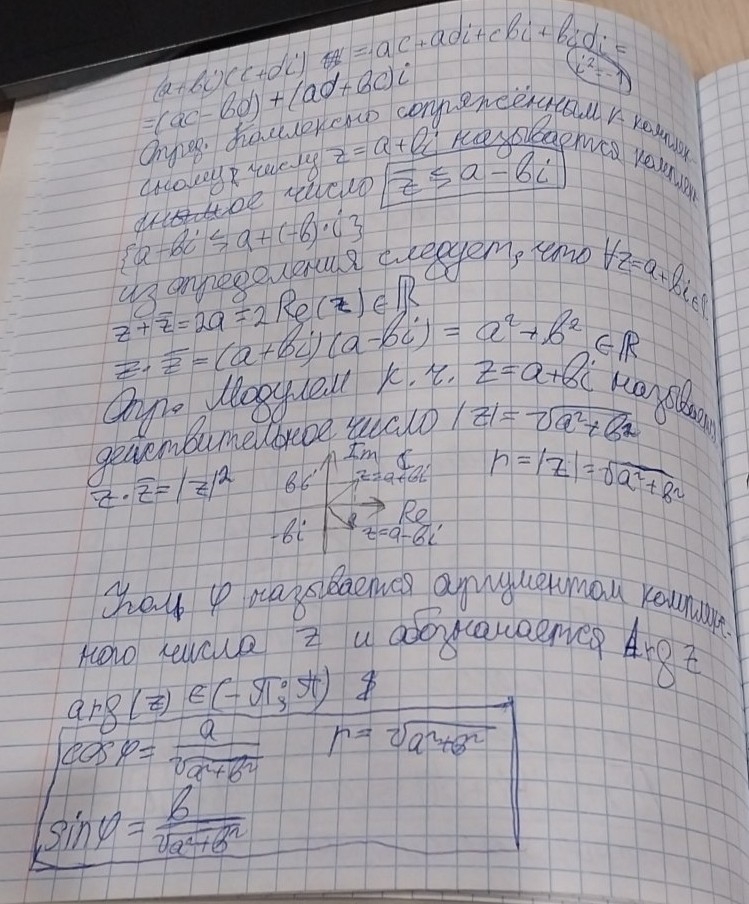 (a+bi)(c+di) = ac+adi+cbi+bidi=
i²=-1
=(ac-bd)+(ad+bc)i
Опред. Комплексно сопряжённым к комплек-
сному числу z=a+bi называется комплек-
ное число z̅ ≤ a-bi
{a-bi ≤ a+(-b)·i}
из определения следует, что ∀z=a+bi∈
z+z̅=2a=2Re(z)∈ℝ
z·z̅=(a+bi)(a-bi)=a²+b² ∈ℝ
Опр. Модулем к.ч. z=a+bi называется
действительное число |z|=√a²+b²
z·z̅=|z|²
Im ℂ
bi z=a+bi
r=|z|=√a²+b²
Re
-bi z=a-bi
Угол φ называется аргументом комплекс-
ного числа z и обозначается Arg z
arg(z)∈(-π;π)
cosφ= a/√a²+b² r=√a²+b²
sinφ= b/√a²+b²